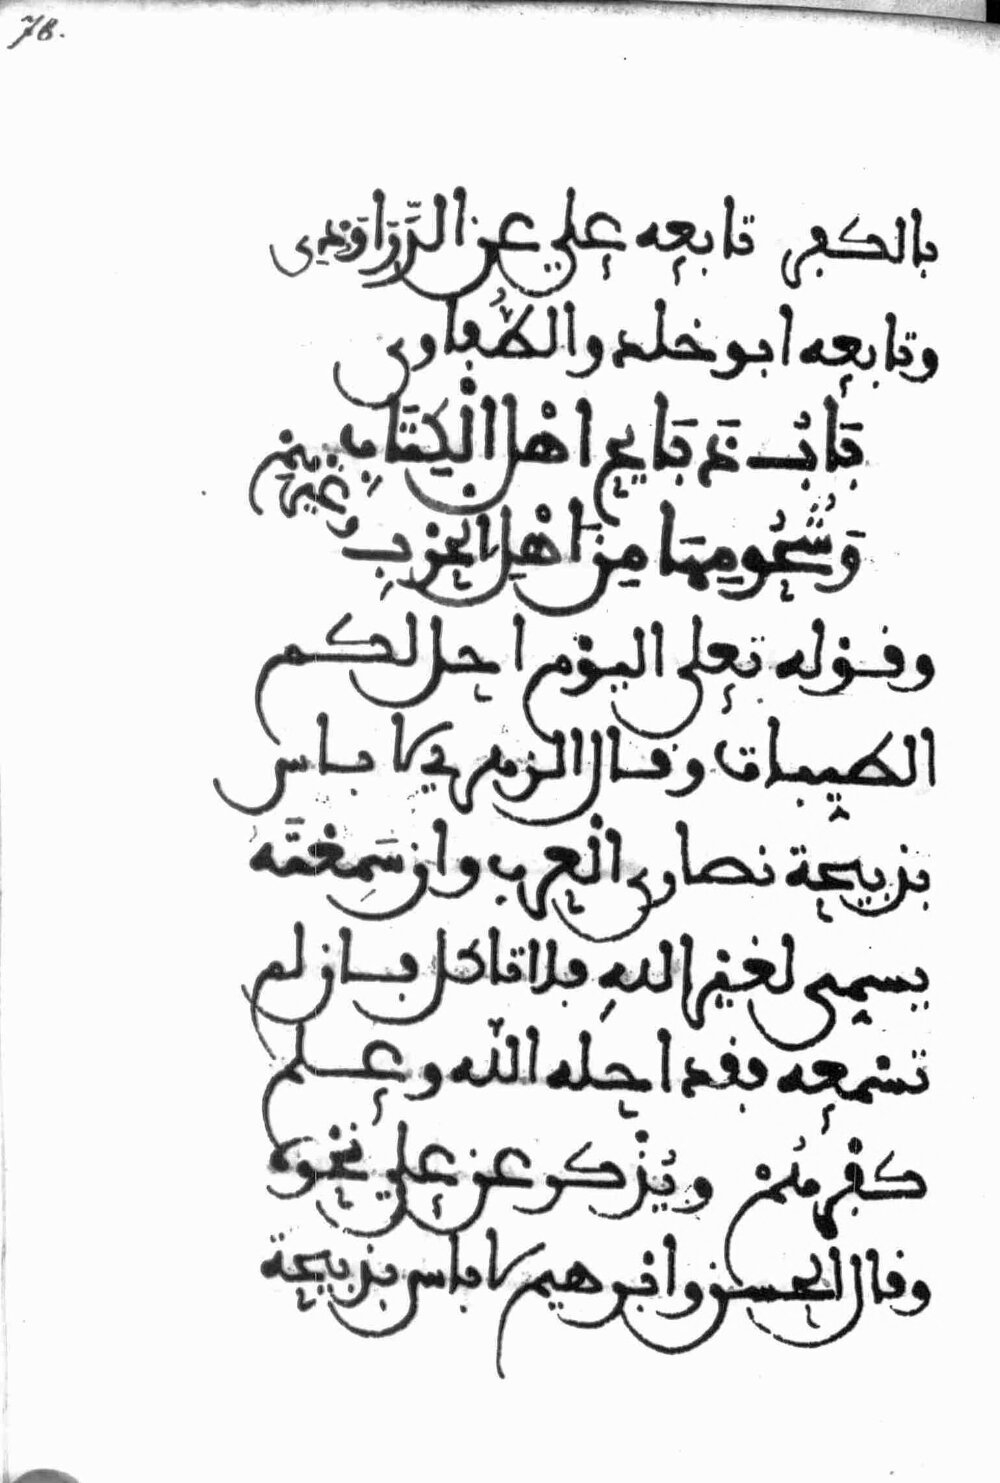 78.
بالكفر تابعه علي عن الدَّرَاوَرْدي
وتابعه ابو خلد والطُّفاوي
بَابُ ذَبَايِح اهْل الْكِتَابِ
وَشُحُومِهَا مِنَ اهْلِ الحَرْبِ وغَيْرِهِمْ
وقوله تعلى اليوْم احل لكم
الطيبات وقال الزهري لا باس
بذبيحة نصارى الْعرب وان سَمِعْتَه
يسمي لغيْر اللهِ فلا تاكل فان لم
تسْمعه فقد احله اللّه وعلم
كفْرهُمْ ويُذْكر عن علي نحْوه
وقال الحسن وابْرهيم لا باس بذبيحة